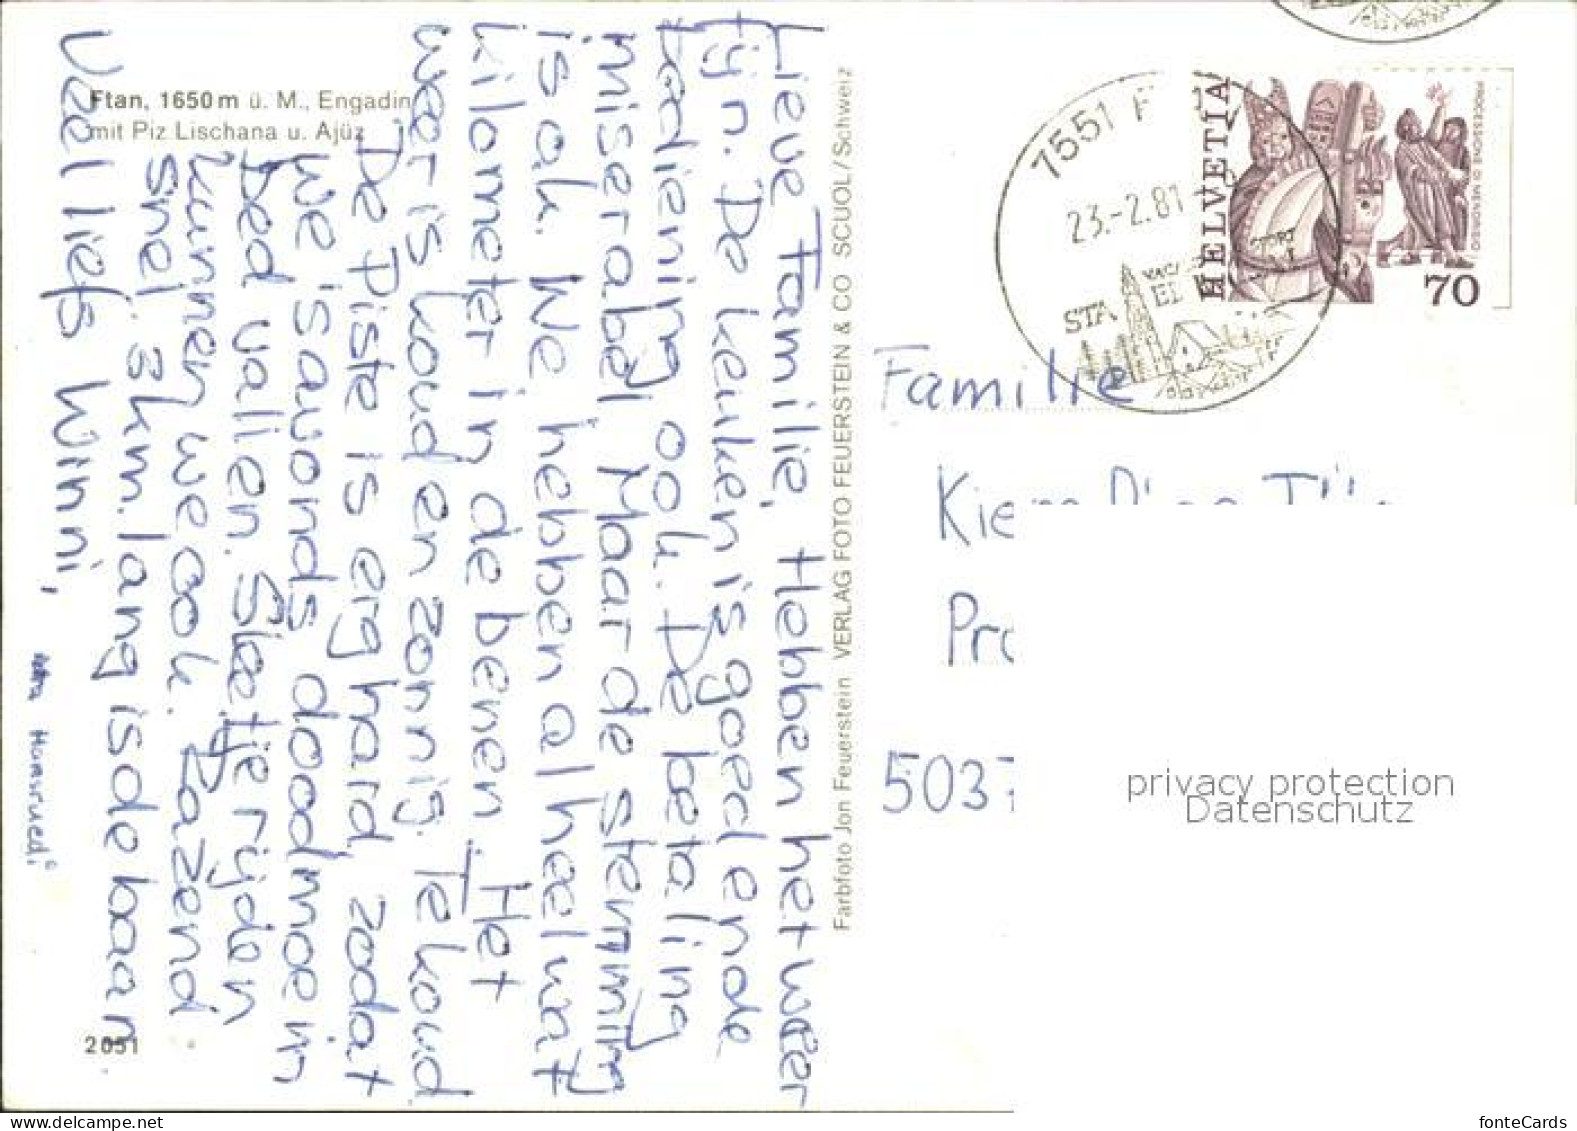 Ftan, 1650 m ü. M., Engadin
mit Piz Lischana u. Ajüz
Lieve Familie, Hebben het weer
fijn. De keuken is goed en de
bediening ook. De betaling
miserabel. Maar de stemming
is ok. We hebben al heel wat
kilometer in de benen. Het
weer is koud en zonnig. Te koud
De Piste is erg hard, zodat
we 's avonds doodmoe in
bed vallen. Sleetje rijden
kunnen we ook. Razend
snel. 3 km. lang is de baan
Veel liefs Winni,
Hansruedi
2051
Farbfoto Jon Feuerstein VERLAG FOTO FEUERSTEIN & CO SCUOL/Schweiz
7551 F
23.-2.81
HELVETIA
PROCESSIONE DI MENDRISIO
70
Familie
5037
privacy protection
Datenschutz
fonteCards